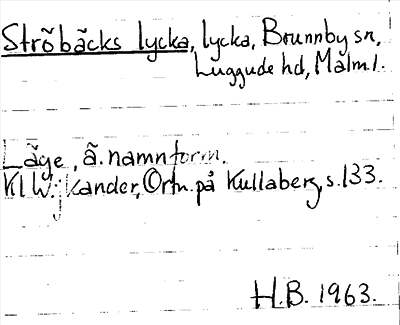 Ströbäcks lycka, lycka, Brunnby sn,
Luggude hd, Malm l.
Läge, ä. namnform.
Kl W:jkander, Ortn. på Kullaberg, s. 133.
H.B. 1963.